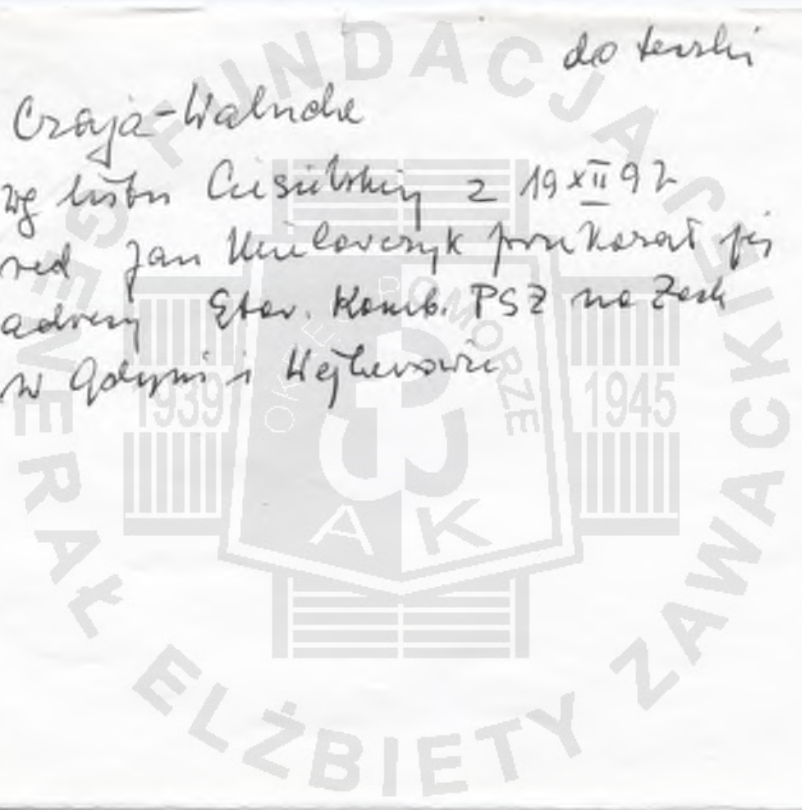 do teczki
Czaja-Walude
wg listu Ciesielskiej z 19 XII 92
red Jan Mielcarczyk przekazał jej
adresy Stow. Komb. PSZ na Zach
w Gdyni i Wejherowie
FUNDACJA
GENERAŁ ELŻBIETY ZAWACKIEJ
1939
1945
OKRĘG POMORZE
AK